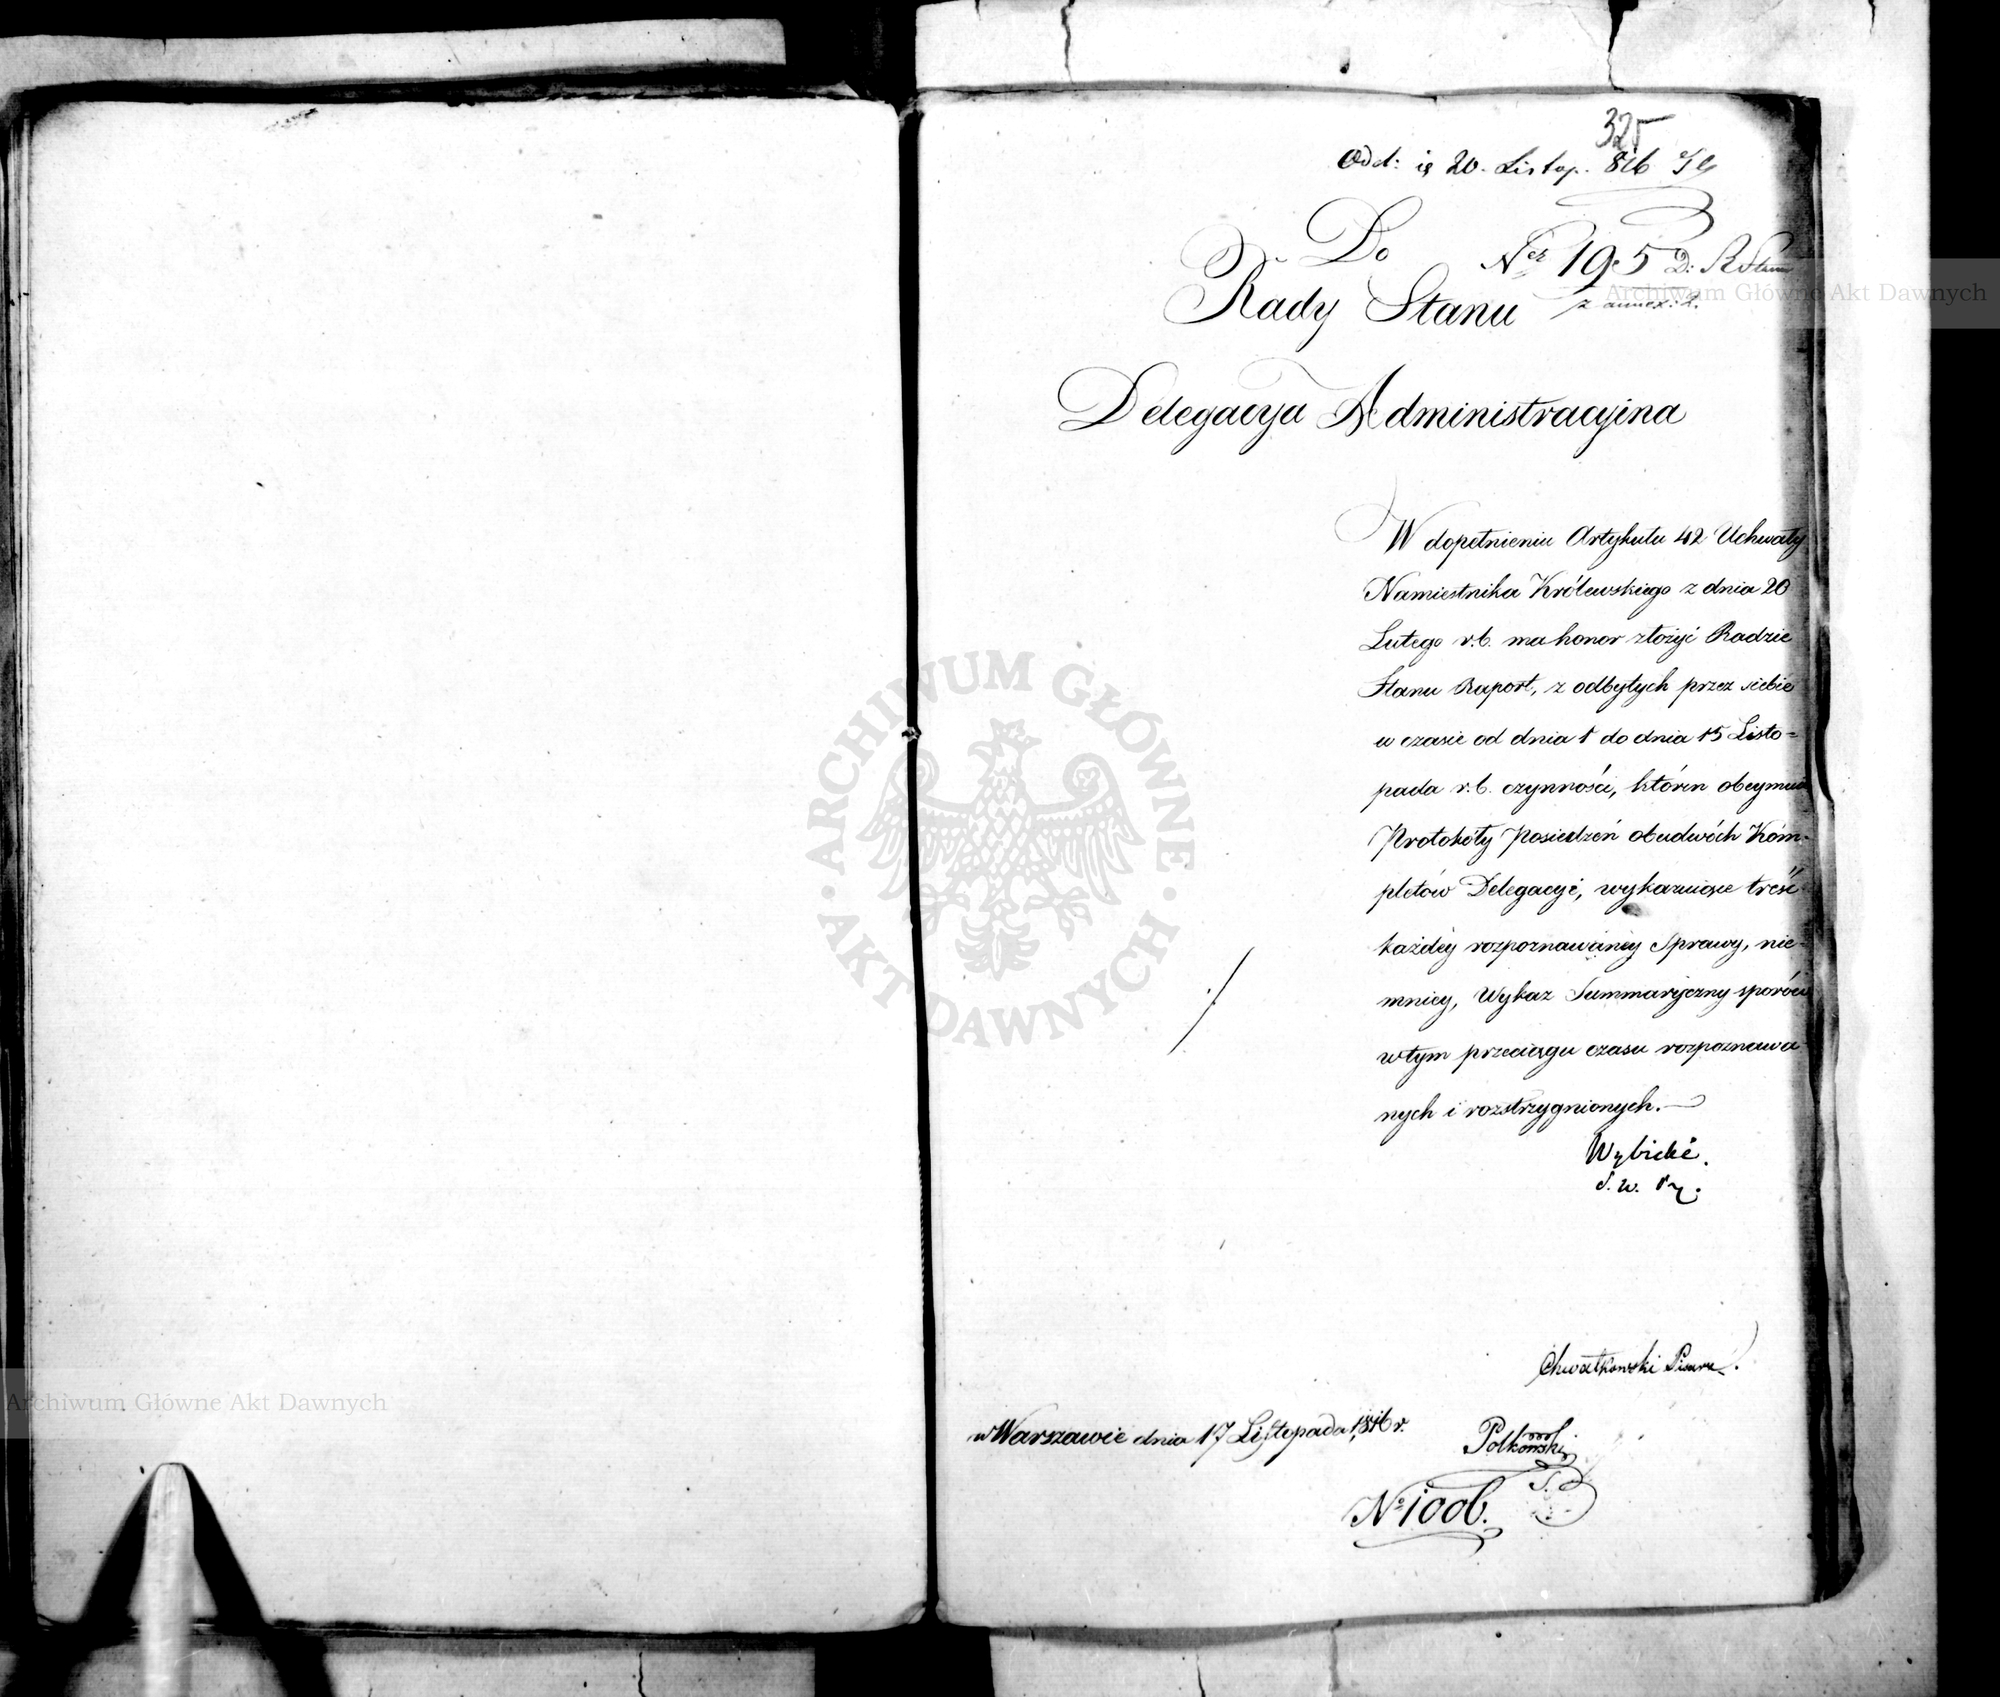 325
Odd: is 20. Listop. 816
Do
Rady Stanu
Ner 195 D: R Stanu
z annex: 2.
Delegacya Administracyina
W dopełnieniu Artykułu 42 Uchwały
Namiestnika Królewskiego z dnia 20
Lutego r.b. ma honor złożyć Radzie
Stanu Raport, z odbytych przez siebie
w czasie od dnia 1 do dnia 15 Listo=
pada r.b. czynności, któren obeymuie
Protokóły Posiedzeń obudwóch Kóm=
pletów Delegacyi, wykazuiące treść
każdéy rozpoznawanéy Sprawy, nie=
mniey, Wykaz Summaryczny sporów
w tym przeciągu czasu rozpoznawa=
nych i rozstrzygnionych.—
Wybicki.
S. W. Pr.
Chwałkowski Pisarz.
w Warszawie dnia 17 Listopada 1816 r.
Polkowski
No 1006.
ARCHIWUM GŁÓWNE
AKT DAWNYCH
Archiwum Główne Akt Dawnych
Archiwum Główne Akt Dawnych